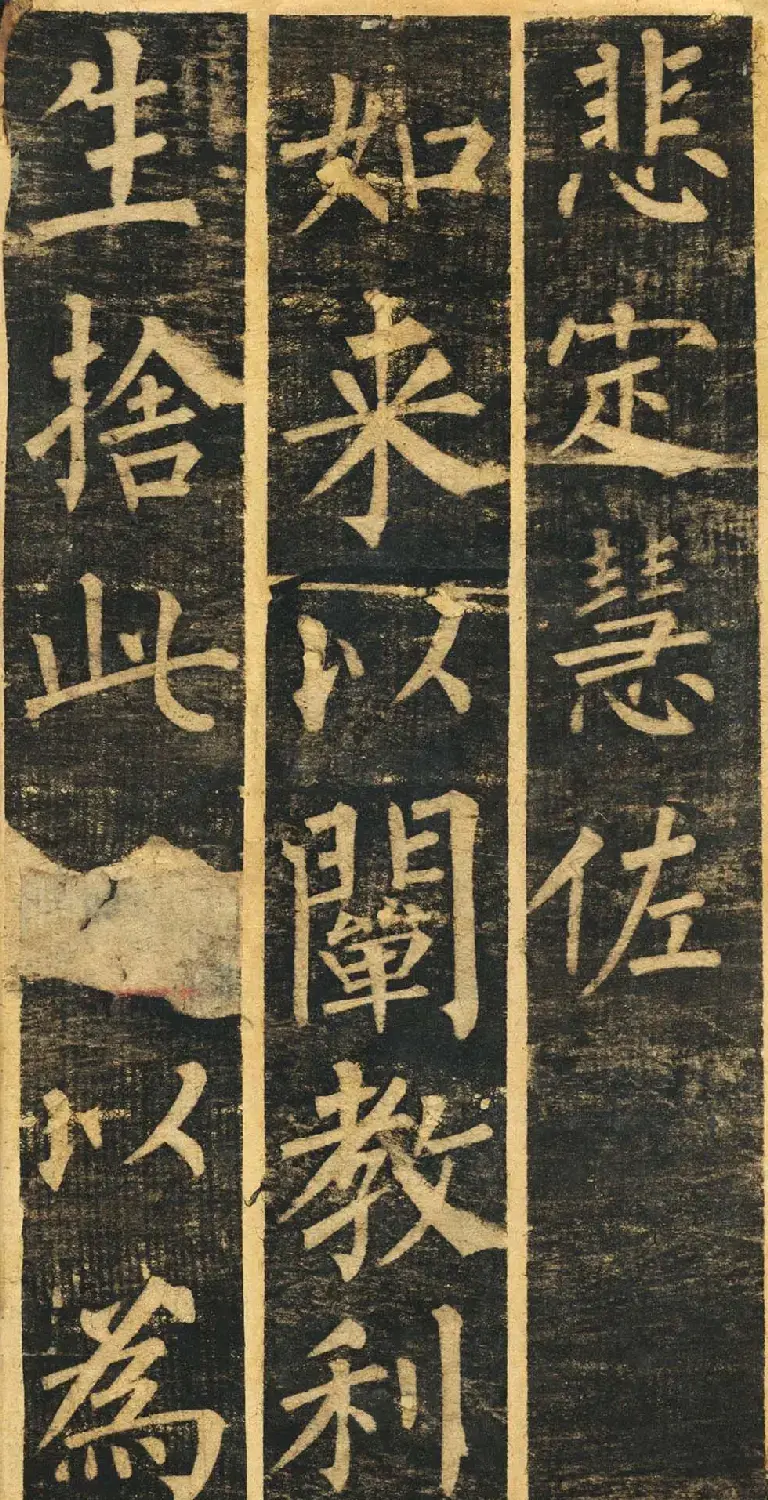 悲定慧佐
如来以闡教利
生捨此以為